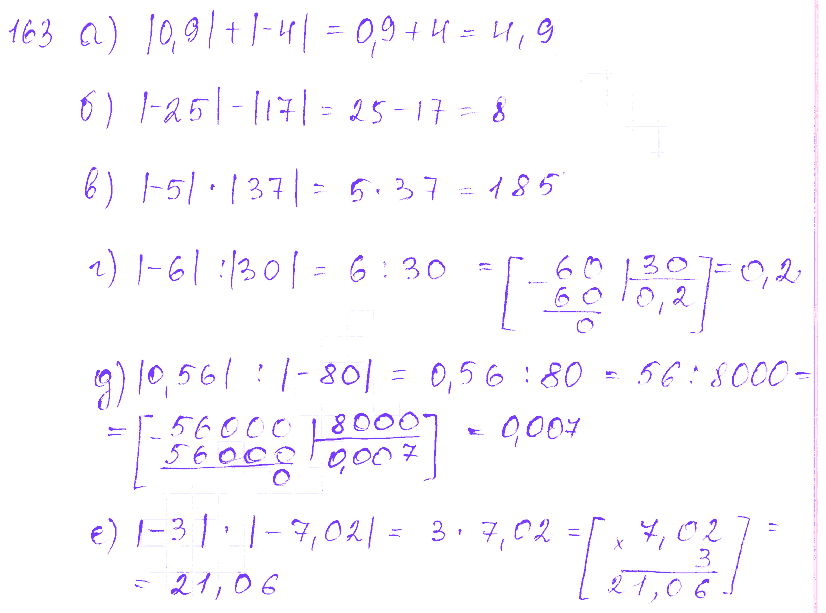 163 а) |0,9| + |-4| = 0,9 + 4 = 4,9
б) |-25| - |17| = 25 - 17 = 8
в) |-5| · |37| = 5 · 37 = 185
г) |-6| : |30| = 6 : 30 = [ - 60 | 30 ] = 0,2
60 0,2
0
д) |0,56| : |-80| = 0,56 : 80 = 56 : 8000 =
= [ - 56000 | 8000 ] = 0,007
56000 0,007
0
е) |-3| · |-7,02| = 3 · 7,02 = [ × 7,02 ] =
3
= 21,06 21,06